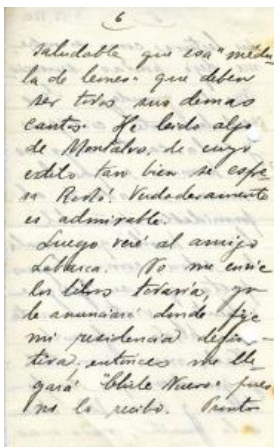 6
saludable que esa "médu-
la de leones" que deben
ser todos sus demas
cantos. He leido algo
de Montalvo, de cuyo
estilo tan bien se espre-
sa Rodó! Verdaderamente
es admirable.
Luego veré al amigo
Labarca. No me envie
los libros todavía, yo
le anunciaré donde fije
mi residencia defini-
tiva, entonces me lle-
gará "Chile Nuevo" pues
no lo recibo. Pronto